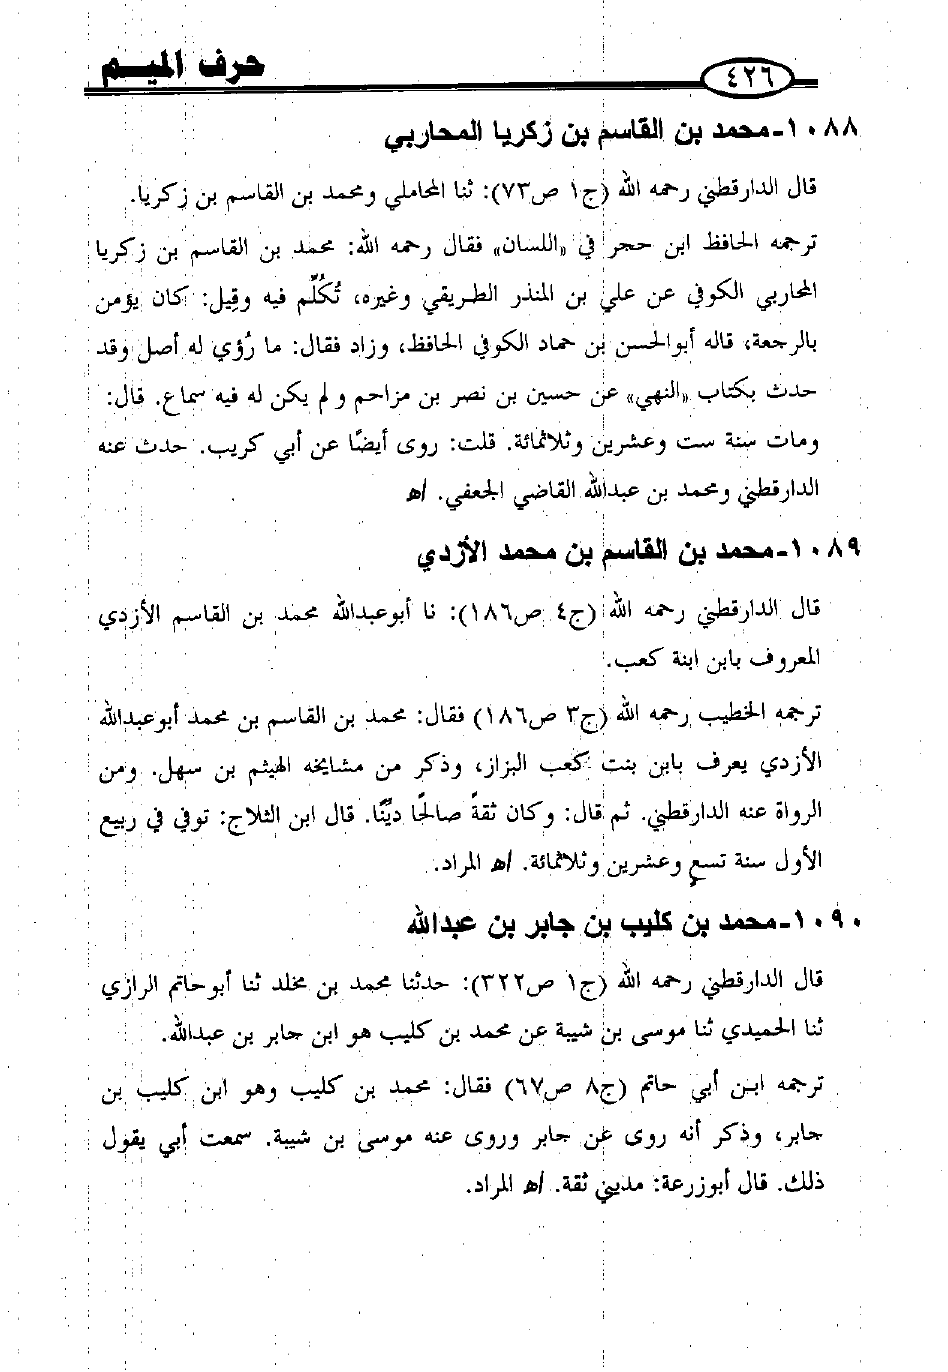 حرف الميم
٤٢٦
١٠٨٨-محمد بن القاسم بن زكريا المحاربي
قال الدارقطني رحمه الله (ج١ ص٧٣): ثنا المحاملي ومحمد بن القاسم بن زكريا.
ترجمه الحافظ ابن حجر في «اللسان» فقال رحمه الله: محمد بن القاسم بن زكريا
المحاربي الكوفي عن علي بن المنذر الطريقي وغيره، تُكُلِّم فيه وقِيل: كان يؤمن
بالرجعة، قاله أبوالحسن بن حماد الكوفي الحافظ، وزاد فقال: ما رُؤي له أصل وقد
حدث بكتاب «النهي» عن حسين بن نصر بن مزاحم و لم يكن له فيه سماع. قال:
ومات سنة ست وعشرين وثلاثمائة. قلت: روى أيضًا عن أبي كريب. حدث عنه
الدارقطني ومحمد بن عبدالله القاضي الجعفي. اﻫ
١٠٨٩-محمد بن القاسم بن محمد الأزدي
قال الدارقطني رحمه الله (ج٤ ص١٨٦): نا أبوعبدالله محمد بن القاسم الأزدي
المعروف بابن ابنة كعب.
ترجمه الخطيب رحمه الله (ج٣ ص١٨٦) فقال: محمد بن القاسم بن محمد أبوعبدالله
الأزدي يعرف بابن بنت كعب البزاز، وذكر من مشايخه الهيثم بن سهل. ومن
الرواة عنه الدارقطني. ثم قال: وكان ثقةً صالحًا ديِّنًا. قال ابن الثلاج: توفي في ربيع
الأول سنة تسعٍ وعشرين وثلاثمائة. اﻫ المراد.
١٠٩٠-محمد بن كليب بن جابر بن عبدالله
قال الدارقطني رحمه الله (ج١ ص٣٢٢): حدثنا محمد بن مخلد ثنا أبوحاتم الرازي
ثنا الحميدي ثنا موسى بن شيبة عن محمد بن كليب هو ابن جابر بن عبدالله.
ترجمه ابن أبي حاتم (ج٨ ص٦٧) فقال: محمد بن كليب وهو ابن كليب بن
جابر، وذكر أنه روى عن جابر وروى عنه موسى بن شيبة. سمعت أبي يقول
ذلك. قال أبوزرعة: مديني ثقة. اﻫ المراد.